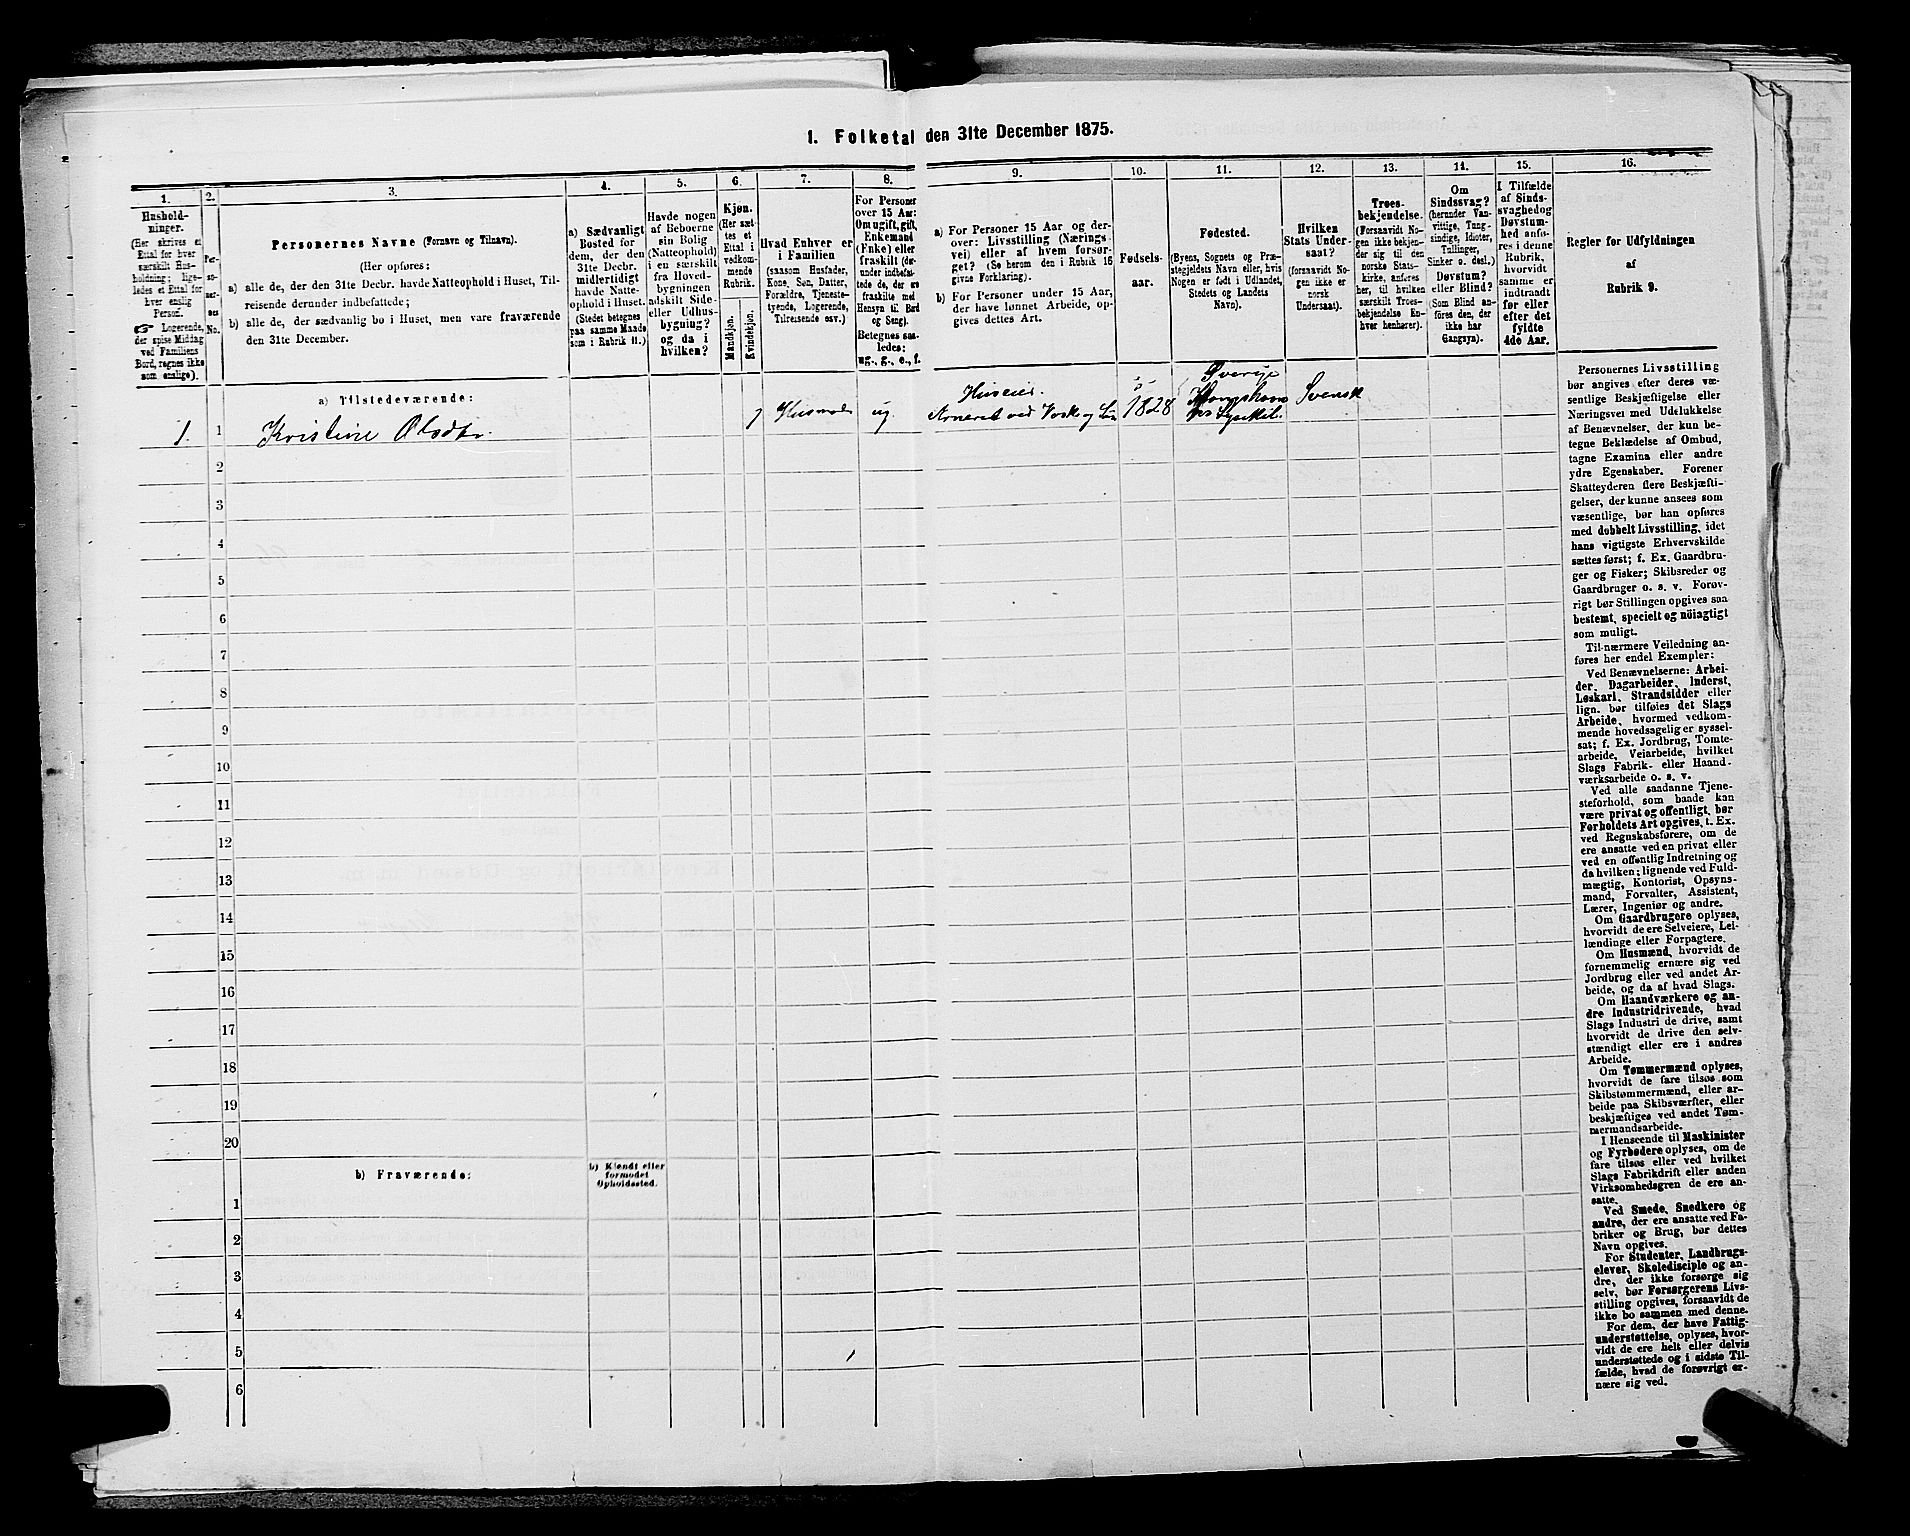 1. Folketal den 31te December 1875.
1.
2.
3.
4.
5.
6.
7.
8.
9.
10.
11.
12.
13.
14.
15.
16.
Hushold-
ninger.
(Her skrives et
Ettal for hver
særskilt Hus-
holdning; lige-
ledes et Ettal for
hver enslig
Person.
☞ Logerende,
der spise Middag
ved Familiens
Bord, regnes ikke
som enslige).
Per-
so-
ner-
nes
No.
Personernes Navne (Fornavn og Tilnavn).
(Her opføres:
a) alle de, der den 31te Decbr. havde Natteophold i Huset, Til-
reisende derunder indbefattede;
b) alle de, der sædvanlig bo i Huset, men vare fraværende
den 31te December.
a) Sædvanligt
Bosted for
dem, der den
31te Decbr.
midlertidigt
havde Natte-
ophold i Huset.
(Stedet betegnes
paa samme Maade
som i Rubrik 11.)
Havde nogen
af Beboerne
sin Bolig
(Natteophold)
i en særskilt
fra Hoved-
bygningen
adskilt Side-
eller Udhus-
bygning?
og da i
hvilken?
Kjøn.
(Her sæt-
tes et
Ettal i
vedkom-
mende
Rubrik.
Mandkjøn.
Kvindekjøn.
Hvad Enhver er
i Familien
(saasom Husfader,
Kone, Søn, Datter,
Forældre, Tjeneste-
tyende, Logerende,
Tilreisende osv.)
For Personer
over 15 Aar:
Om ugift, gift,
Enkemand
(Enke) eller
fraskilt (der-
under indbefat-
tede de, der ere
fraskilte med
Hensyn til Bord
og Seng).
Betegnes saa-
ledes:
ug., g., e., f.
a) For Personer 15 Aar og der-
over: Livsstilling (Nærings-
vei) eller af hvem forsør-
get? (Se herom den i Rubrik 16
givne Forklaring).
b) For Personer under 15 Aar,
der have lønnet Arbeide, op-
gives dettes Art.
Fødsels-
aar.
Fødested.
(Byens, Sognets og Præ-
stegjeldets Navn eller, hvis
Nogen er født i Udlandet,
Stedets og Landets
Navn).
Hvilken
Stats Under-
saat?
(forsaavidt No-
gen ikke er
norsk
Undersaat).
Troes-
bekjendelse.
(Forsaavidt No-
gen ikke bekjen-
der sig til den
norske Stats-
kirke, anføres
her, til hvilken
særskilt Troes-
bekjendelse En-
hver henhører).
Om
Sindssvag?
(herunder Van-
vittige, Tung-
sindige, Idioter,
Tullinger,
Sinker o. desl.)
Døvstum?
eller Blind?
(Som Blind an-
føres den, der
ikke har
Gangsyn).
I Tilfælde
af Sinds-
svaghed og
Døvstum-
hed anfø-
res i denne
Rubrik,
hvorvidt
samme er
indtraadt
før eller
efter det
fyldte
4de Aar.
Regler for Udfyldningen
af
Rubrik 9.
a) Tilstedeværende:
1. 1 Kristine Olsdtr. 1 ug. Huseier. 1828 Sverige Svensk
2
3
4
5
6
7
8
9
10
11
12
13
14
15
16
17
18
19
20
b) Fraværende:
b) Kjendt eller
formodet
Opholdssted.
1
2
3
4
5
6
Personernes Livsstilling
bør angives efter deres væ-
sentlige Beskjæftigelse eller
Næringsvei med Udelukkelse
af Benævnelser, der kun be-
tegne Beklædelse af Ombud,
tagne Examina eller andre
ydre Egenskaber. Forener
Skatteyderen flere Beskjæfti-
gelser, der kunne ansees som
væsentlige, bør han opføres
med dobbelt Livsstilling, idet
hans vigtigste Erhvervskilde
sættes først; f. Ex. Gaardbru-
ger og Fisker; Skibsreder og
Gaardbruger o. s. v. Forøv-
rigt bør Stillingen opgives saa
bestemt, specielt og nöiagtigt
som muligt.
Til nærmere Veiledning an-
føres her endel Exempler:
Ved Benævnelserne: Arbei-
der, Dagarbeider, Inderst,
Løskarl, Strandsidder eller
lign. bør tilføies det Slags
Arbeide, hvormed vedkom-
mende hovedsagelig er syssel-
sat; f. Ex. Jordbrug, Tomte-
arbeide, Veiarbeide, hvilket
Slags Fabrik- eller Haand-
værksarbeide o. s. v.
Ved alle saadanne Tjene-
steforhold, som baade kan
være privat og offentligt, bør
Forholdets Art opgives, t. Ex.
ved Regnskabsførere, om de
ere ansatte ved en privat eller
ved en offentlig Indretning og
da hvilken; lignende ved Fuld-
mægtig, Kontorist, Opsyns-
mand, Forvalter, Assistent,
Lærer, Ingeniør og andre.
Om Gaardbrugere oplyses,
hvorvidt de ere Selveiere, Lei-
lændinge eller Forpagtere.
Om Husmænd, hvorvidt de
fornemmelig ernære sig ved
Jordbrug eller ved andet Ar-
beide, og da af hvad Slags.
Om Haandværkere og an-
dre Industridrivende, hvad
Slags Industri de drive, samt
hvorvidt de drive den selv-
stændigt eller ere i andres
Arbeide.
Om Tømmermænd oplyses,
hvorvidt de fare tilsøs som
Skibstømmermænd, eller ar-
beide paa Skibsværfter, eller
beskjæftiges ved andet Tøm-
mermandsarbeide.
I Henseende til Maskinister
og Fyrbødere oplyses, om de
fare tilsøs eller ved hvilket
Slags Fabrikdrift eller anden
Virksomhedsgren de ere an-
satte.
Ved Smede, Snedkere og
andre, der ere ansatte ved Fa-
briker og Brug, bør dettes
Navn opgives.
For Studenter, Landbrugs-
elever, Skoledisciple og an-
dre, der ikke forsørge sig
selv, bør Forsørgerens Livs-
stilling opgives, forsaavidt de
ikke bo sammen med denne.
For dem, der have Fattig-
understøttelse, oplyses, hvor-
vidt de ere helt eller delvis
understøttede og i sidste Til-
fælde, hvad de forøvrigt er-
nære sig ved.